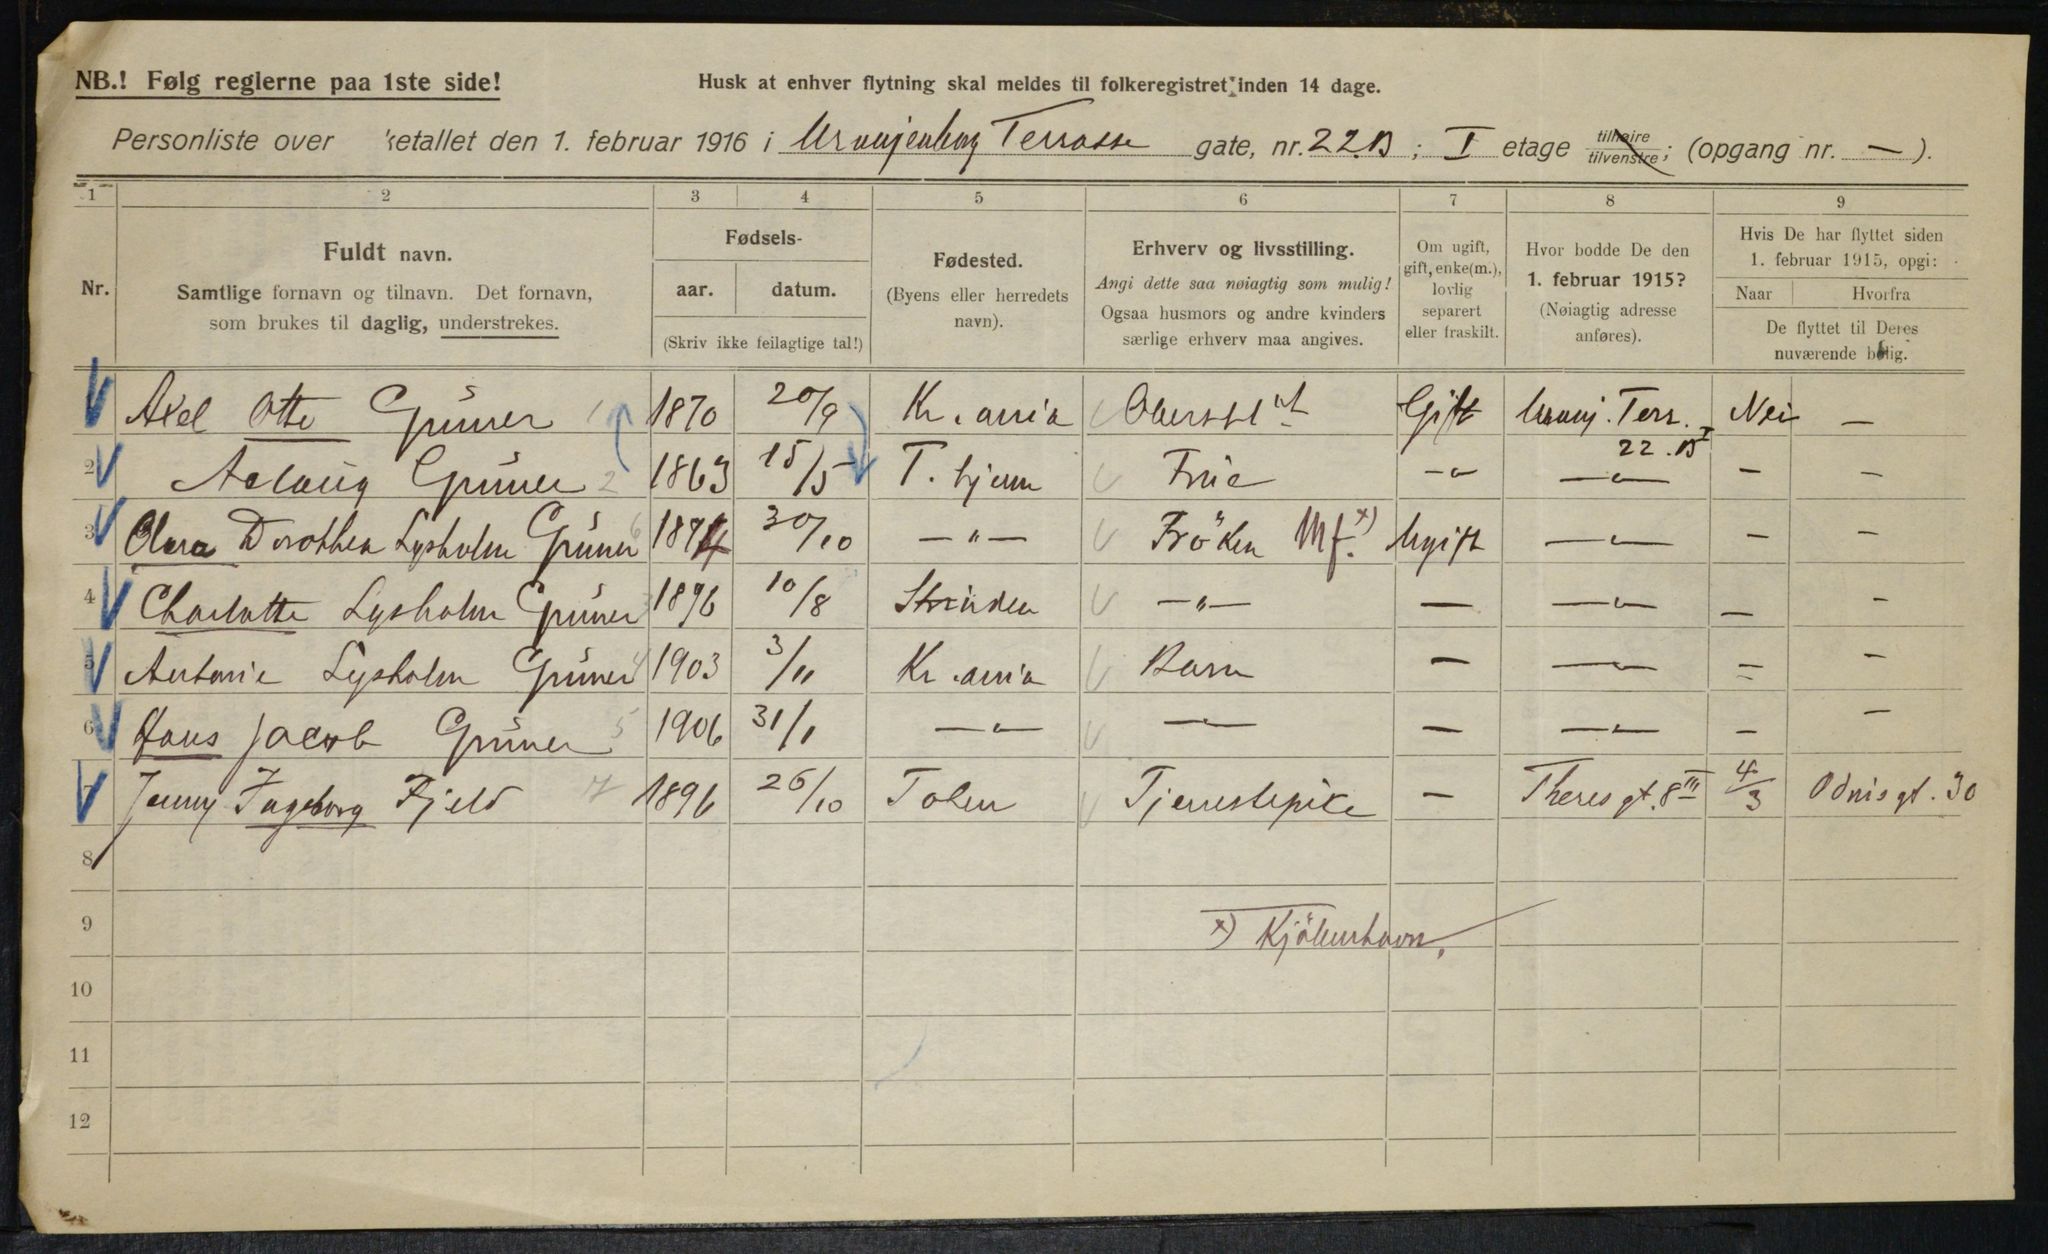 NB.! Følg reglerne paa 1ste side!
Husk at enhver flytning skal meldes til folkeregistret inden 14 dage.
Personliste over ketallet den 1. februar 1916 i Uranienborg Terrasse gate, nr. 22.B; I etage tilhøire tilvenstre; (opgang nr. — ).
1 2 3 4 5 6 7 8 9
Nr.
Fuldt navn.
Samtlige fornavn og tilnavn. Det fornavn,
som brukes til daglig, understrekes.
Fødsels-
aar. datum.
(Skriv ikke feilagtige tal!)
Fødested.
(Byens eller herredets
navn).
Erhverv og livsstilling.
Angi dette saa nøiagtig som mulig!
Ogsaa husmors og andre kvinders
særlige erhverv maa angives.
Om ugift,
gift, enke(m.),
lovlig
separert
eller fraskilt.
Hvor bodde De den
1. februar 1915?
(Nøiagtig adresse
anføres).
Hvis De har flyttet siden
1. februar 1915, opgi:
Naar Hvorfra
De flyttet til Deres
nuværende bolig.
Axel Otto Grüner 1 1870 20/9 Kr.ania Oberstlöt Gift Uranj. Terr. 22.B I Nei —
2 Aslaug Grüner 2 1863 15/5 T.hjem Frue —"— —"— — —
3 Clara Dorothea Lysholm Grüner 6 1894 30/10 —"— Fröken Mf. x) Ugift —"— — —
4 Charlotte Lysholm Grüner 3 1896 10/8 Strinden —"— — —"— — —
5 Antonie Lysholm Grüner 4 1903 3/11 Kr.ania Barn — —"— = —
6 Hans Jacob Grüner 5 1906 31/1 —"— —"— — —"— — —
7 Jenny Ingeborg Fjeld 7 1896 26/10 Tjenestepike — Theresgt. 8 III 4/3 Odinsgt. 30
8
9
x) Kjöbenhavn.
10
11
12